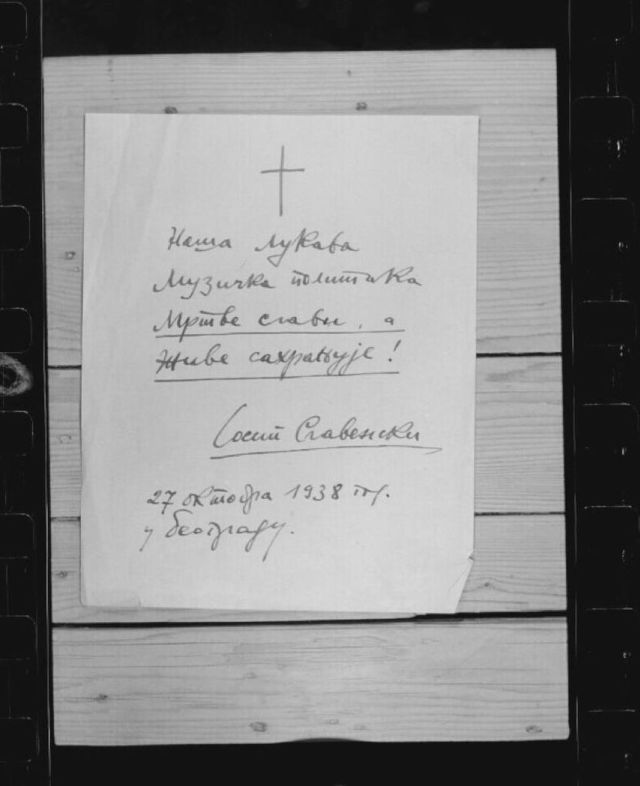 Наша лукава
Музичка политика
Мртве слави, а
живе сахрањује!
Јосип Славенски
27 октобра 1938 год.
у Београду.